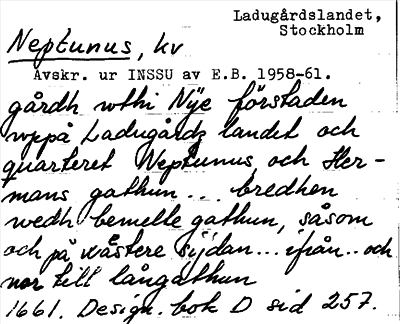 Ladugårdslandet,
Stockholm
Neptunus, kv
Avskr. ur INSSU av E.B. 1958-61.
gårdh wthi Nÿe förstaden
wppå Ladugårdz landet och
quarteret Neptunus och Her-
mans gathun... bredhen
wedh bemelte gathun, såsom
och på wästere sijdan... ifrån.. och
ner till långathun
1661. Design. bok D sid 257.